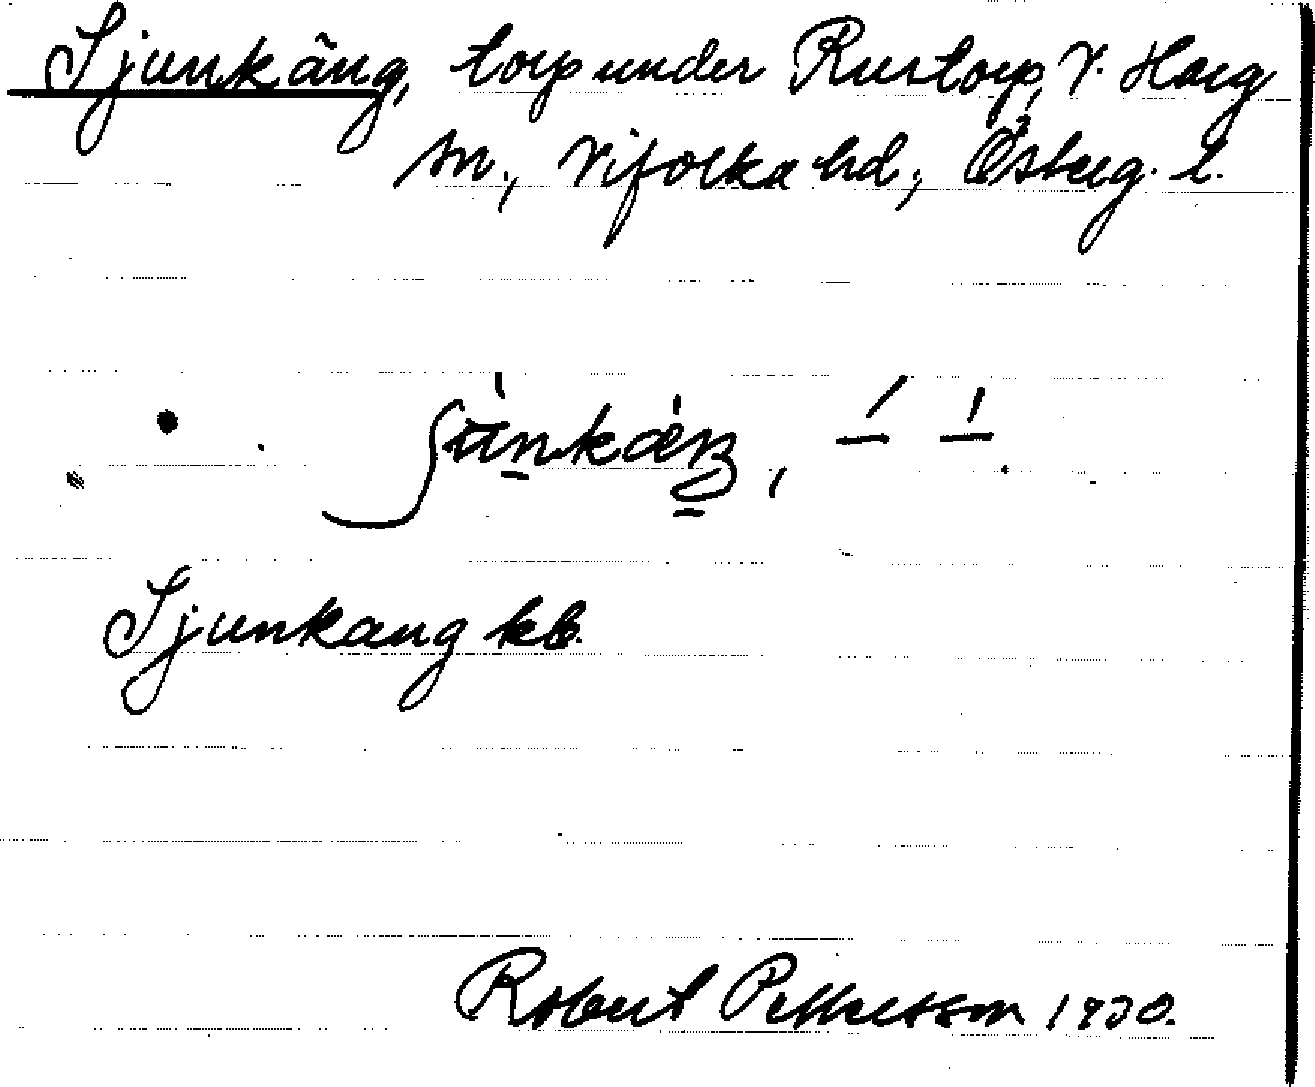 Sjunkäng, torp under Rustorp, V. Harg
sn., Vifolka hd., Östeg. l.
Sjunkang kb.
Robert Pettersson 1930.